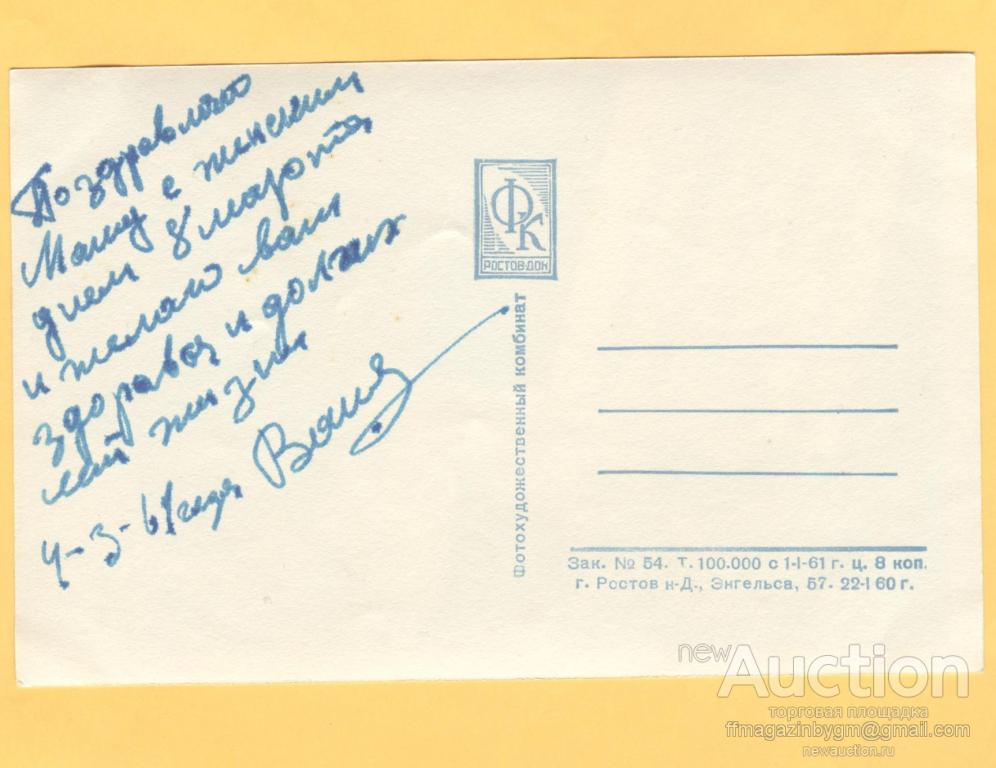 Поздравляю
Маму с женским
днем 8 марта
и желаю вам
здоровья и долгих
лет жизни
4-3-61 года Ваня
ФК
РОСТОВ-ДОН
Фотохудожественный комбинат
Зак. № 54. Т. 100.000 с 1-I-61 г. ц. 8 коп.
г. Ростов н-Д., Энгельса, 57. 22-I 60 г.
newAuction
торговая площадка
ffmagazinbygm@gmail.com
newauction.ru